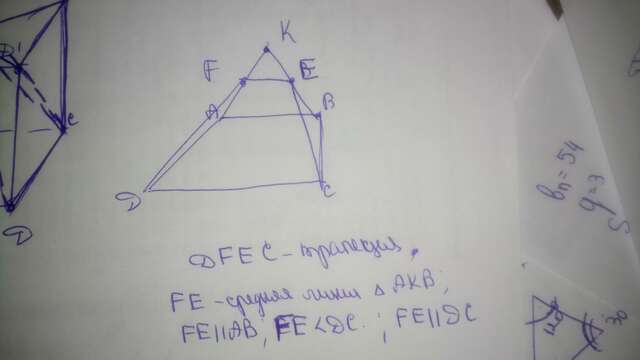 K
F E
A B
D' C
D C
D
DFEC - трапеция,
FE - средняя линия △ AKB;
FE||AB; FE<DC.; FE||DC
bn = 54
q = 3
S
30